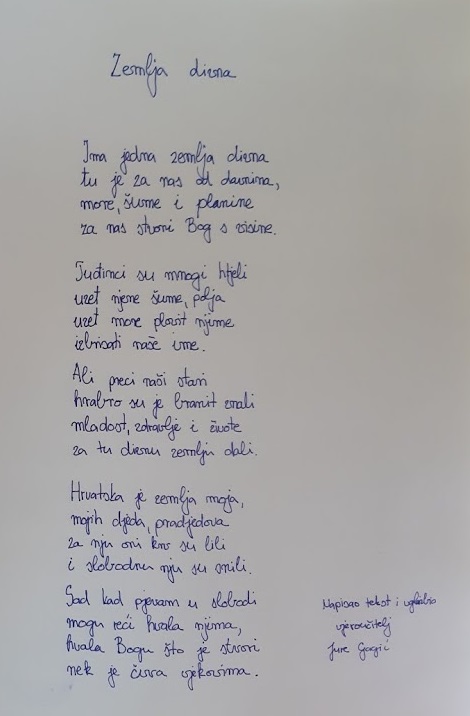 Zemlja divna
Ima jedna zemlja divna
tu je za nas od davnina,
more, šume i planine
za nas stvori Bog s visine.
Tuđinci su mnogi htjeli
uzet njene šume, polja
uzet more plovit njime
izbrisati naše ime.
Ali preci naši stari
hrabro su je branit znali
mladost, zdravlje i živote
za tu divnu zemlju dali.
Hrvatska je zemlja moja,
mojih djeda, pradjedova
za nju oni krv su lili
i slobodnu nju su snili.
Sad kad pjevam u slobodi
mogu reći hvala njima,
hvala Bogu što je stvori
nek je čuva vjekovima.
Napisao tekst i uglazbio
vjeroučitelj
Jure Gagić